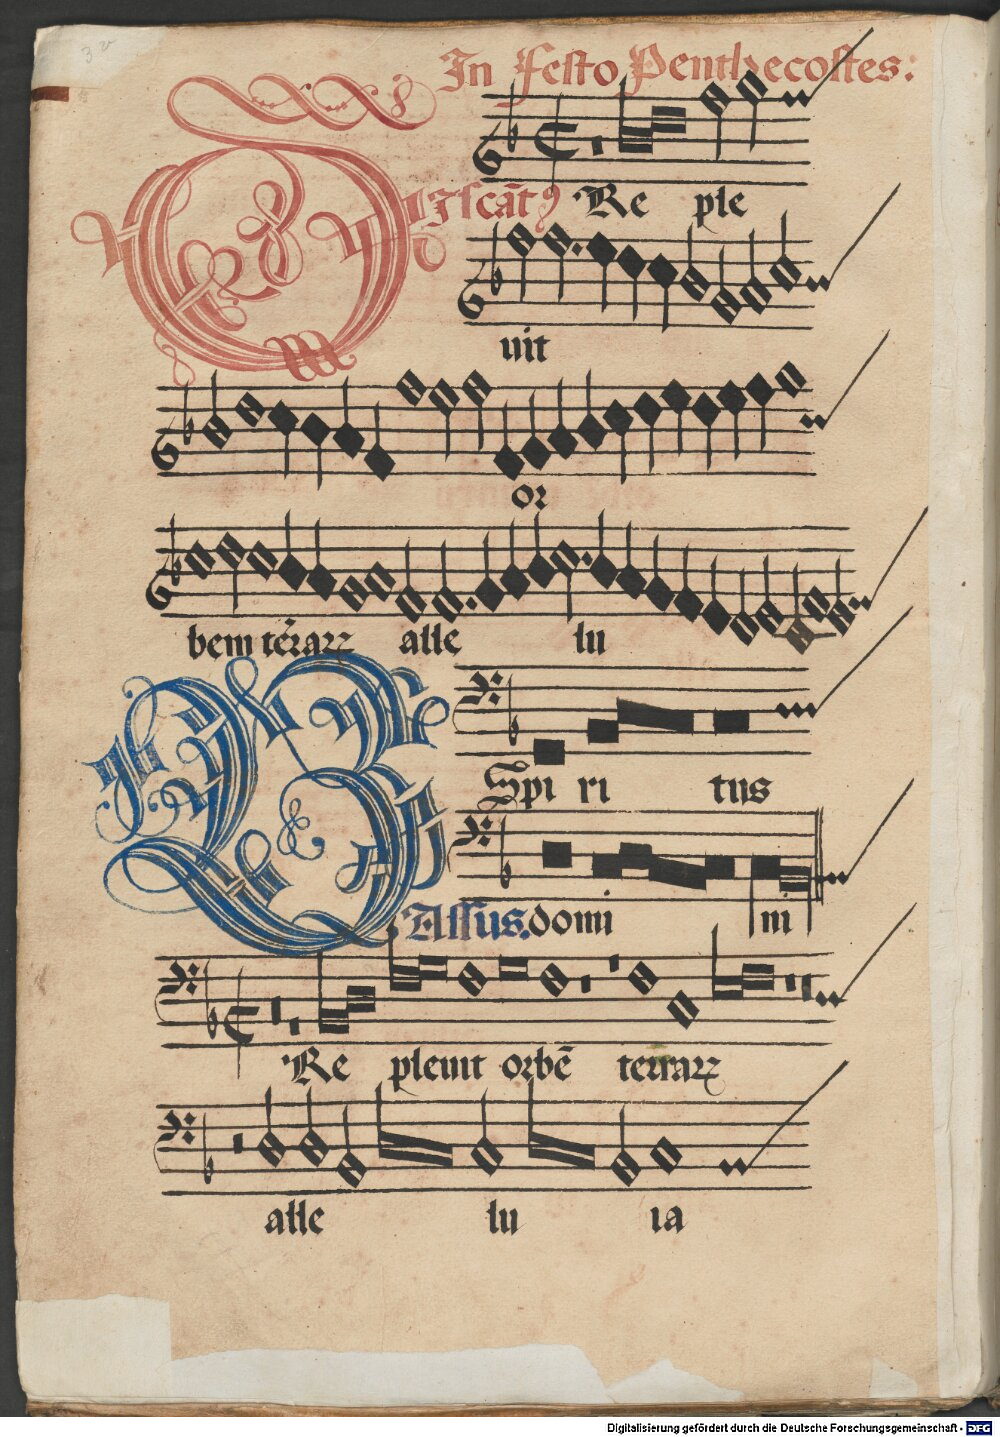 3v
In Festo Penthecostes:
DIscāt9 Re ple
uit
or
bem terarꝝ alle lu
Spi ri tus
BAssus. domi ni
Re pleuit orbē terrarꝝ
alle lu ia
Digitalisierung gefördert durch die Deutsche Forschungsgemeinschaft - DFG